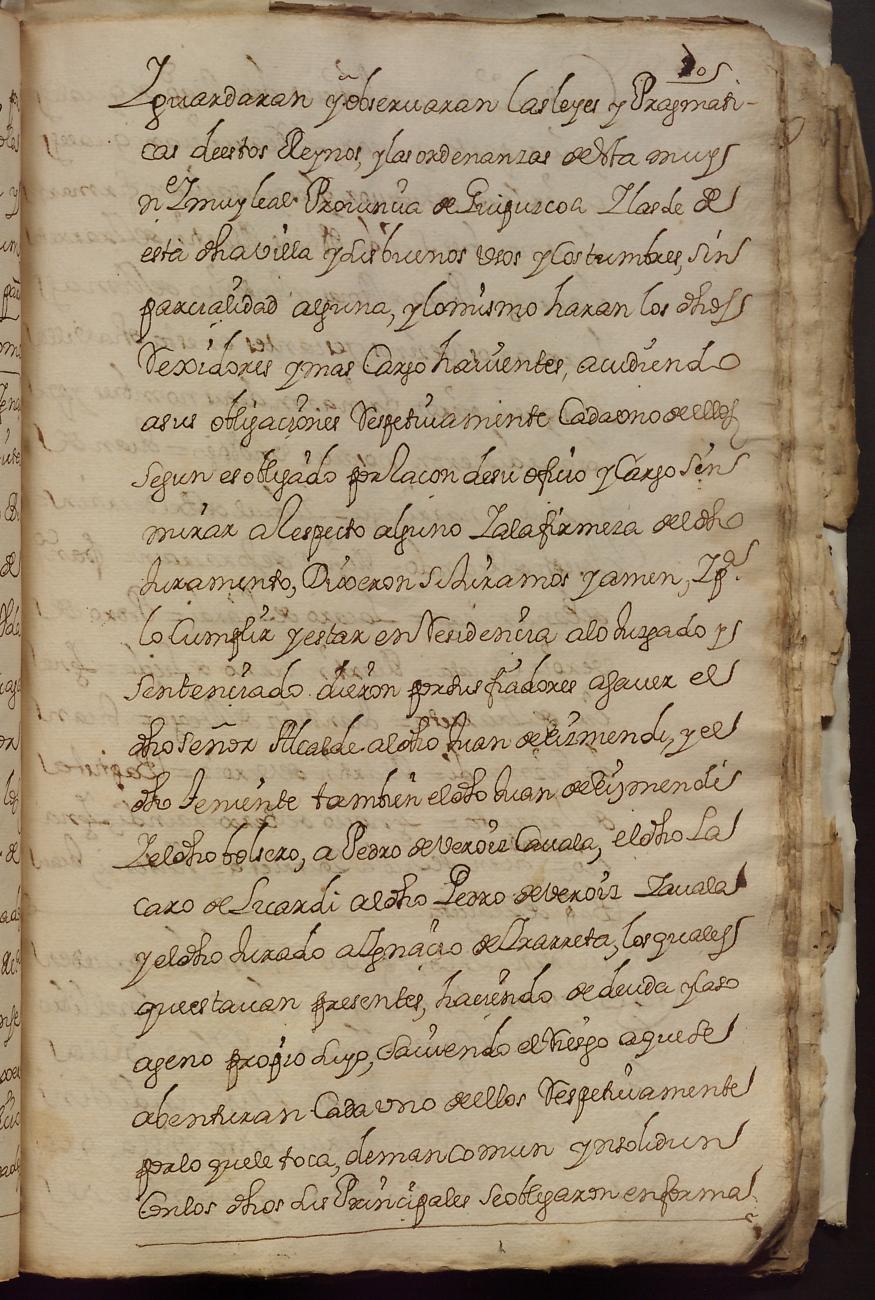 Y guardaran y observaran las leyes y Pragmati-
cas de estos Reynos, y las ordenanzas de esta muy
n.e Y muy leal Prouinçia de Guipuzcoa Y las de
esta dha villa y sus buenos usos y costumbres, sin
parcialidad alguna, y lo mismo haran los dhos
Rexidores y mas Cargo hauientes, acudiendo
a sus obligaciones Respetiuamente Cada uno de ellos
segun es obligado por Raçon de su ofiçio y Cargo sin
mirar a Respecto alguno Y a la firmeza del dho
Juramento, Dixeron si Juramos y amen, Y p.a
lo Cumplir y estar en Residençia a lo Juzgado y
sentençiado dieron por sus fiadores a sauer el
dho señor Alcalde al dho Juan de Eizmendi, y el
dho teniente tambien el dho Juan de Eizmendi
Y el dho bolsero, a Pedro de Veroiz Çauala, el dho La
caro de Licardi al dho Pedro de Veroiz Zauala
y el dho Jurado a Ignaçio de Yrarreta, los quales
que estauan presentes, haciendo de deuda y caso
ageno propio suyo, Sauiendo el Riesgo a que se
abenturan Cada uno de ellos Respetiuamente
por lo que le toca, de mancomun ynsolidun
Con los dhos sus Prinçipales se obligaron en forma